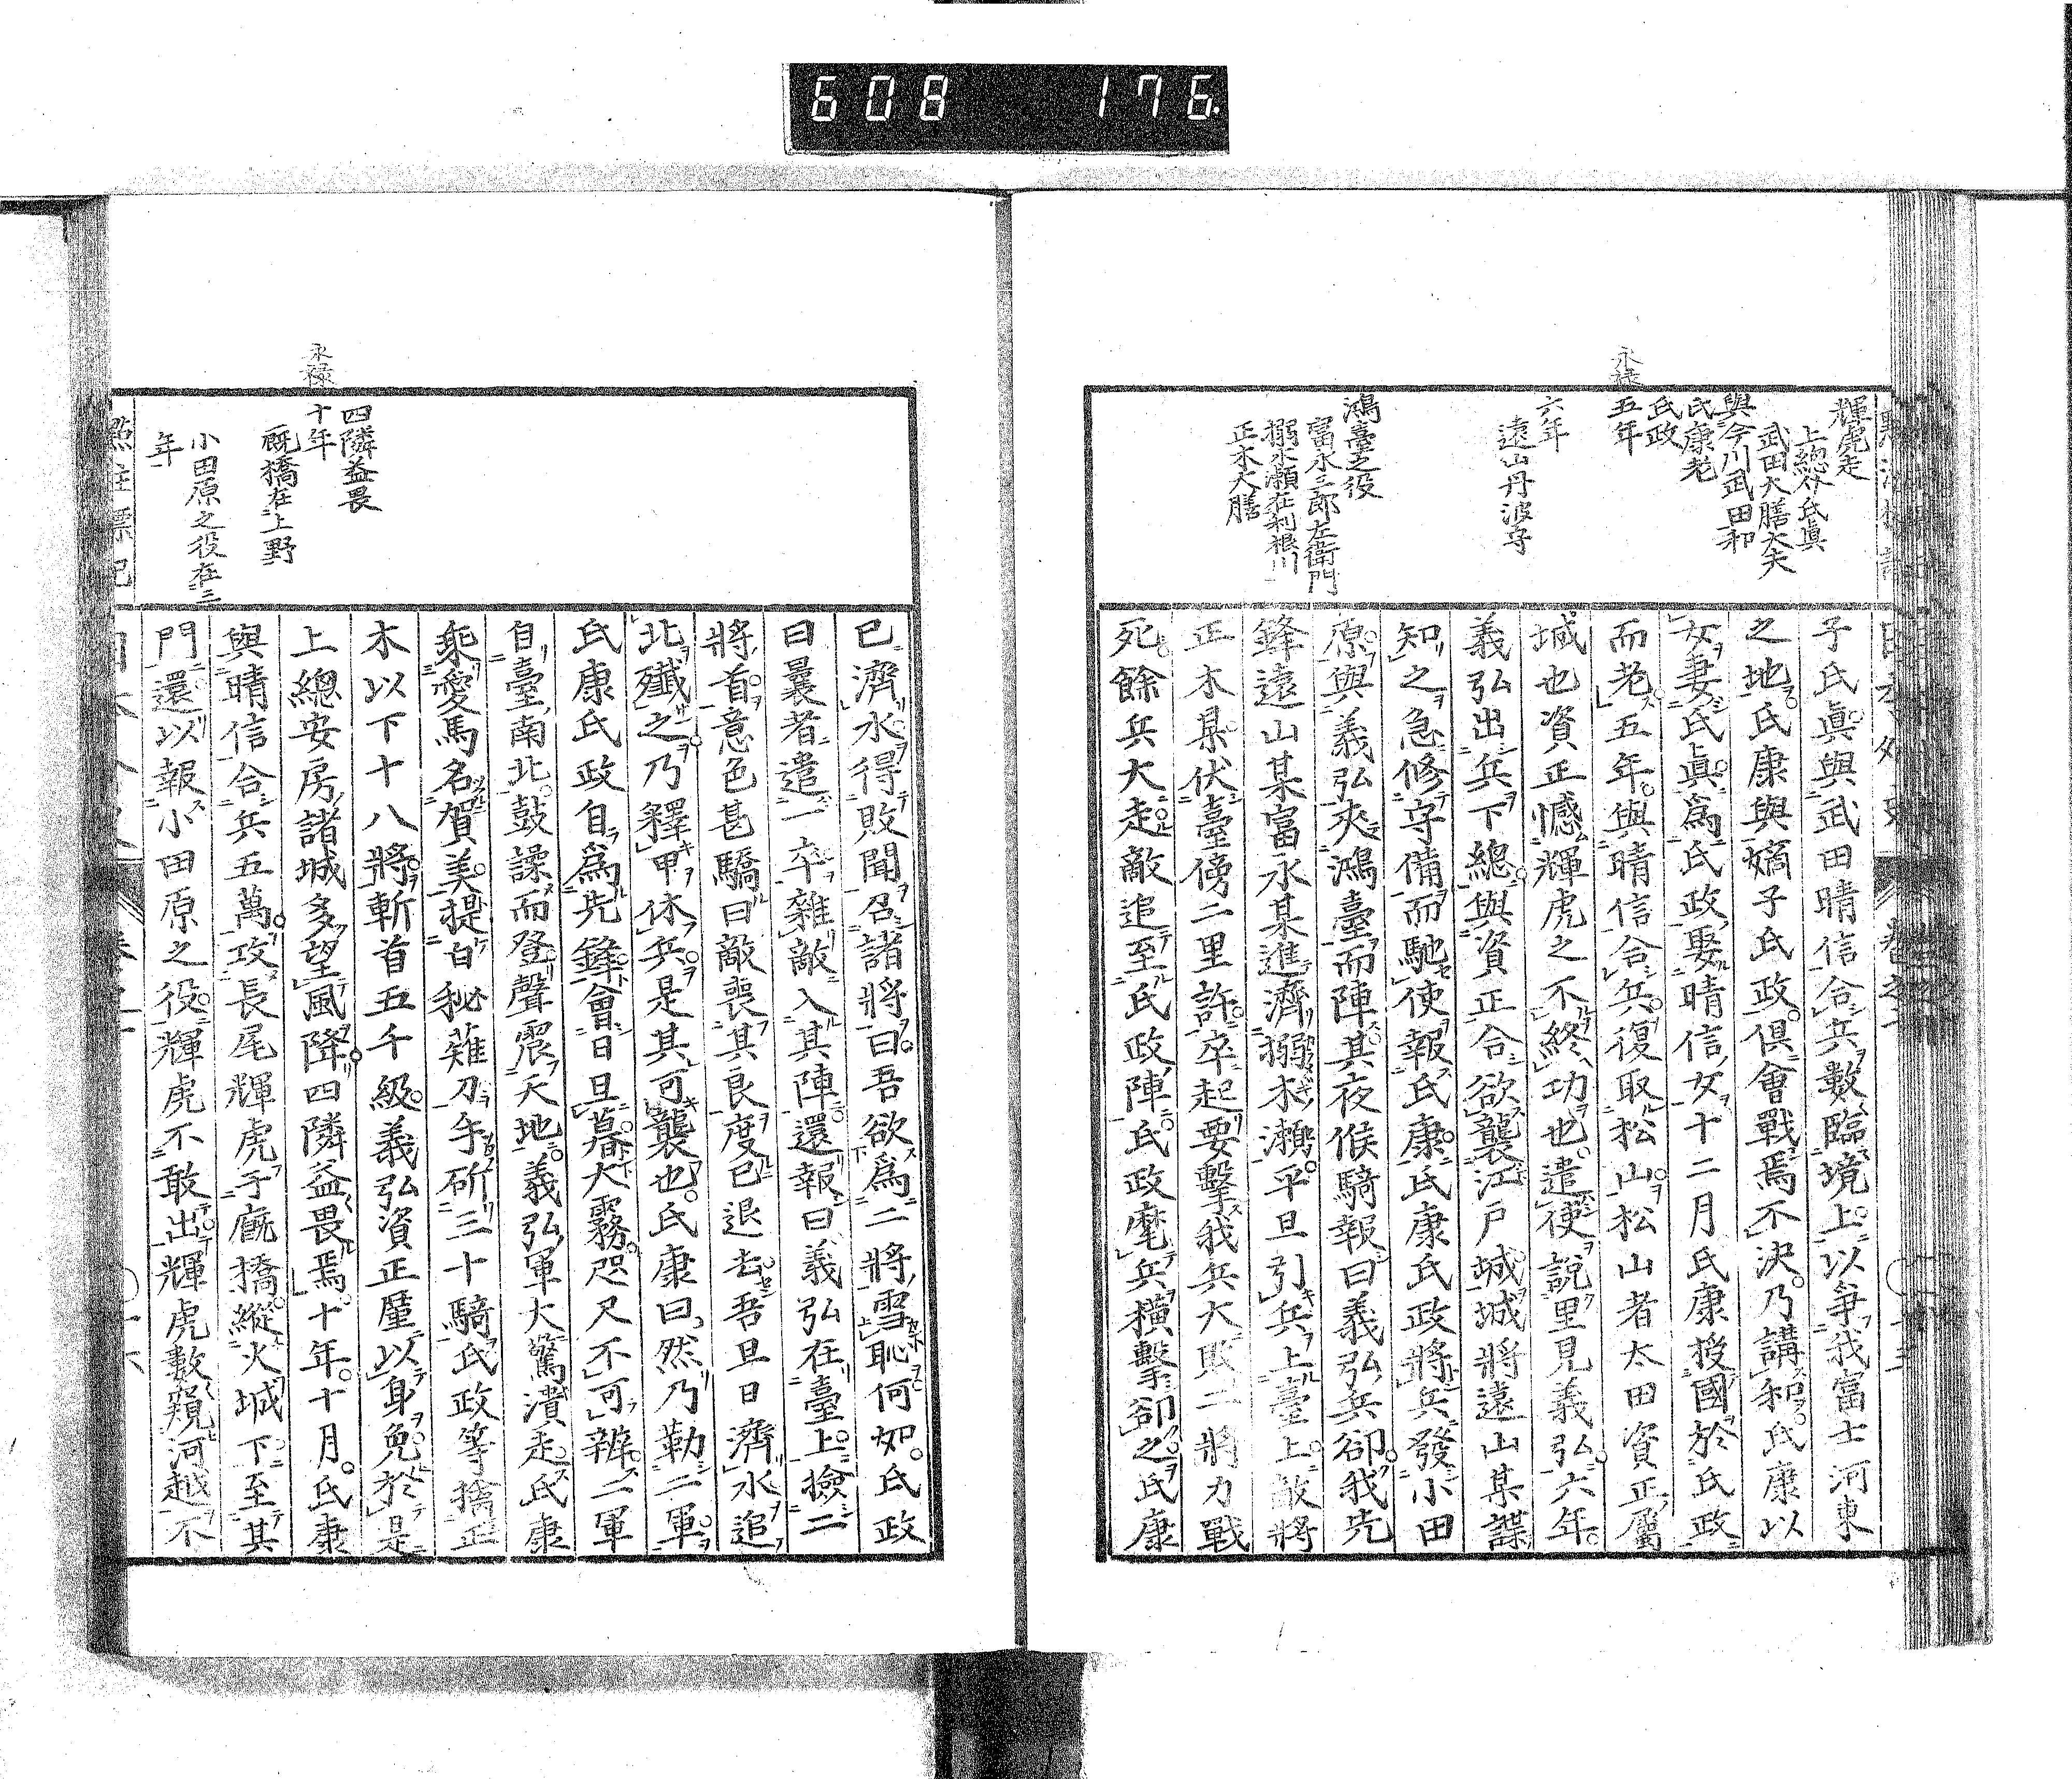 608 176
永祿
輝虎走
上總介氏眞
武田大膳大夫
與今川武田和
氏康老
氏政
五年
六年
遠山丹波守
鴻臺之役
富永三郎左衞門
搦木瀬在利根川
正木大膳
子氏眞與武田晴信合兵數臨境上以爭我富士河東
之地氏康與嫡子氏政俱會戰焉不決乃講和氏康以
女妻氏眞爲氏政娶晴信女十二月氏康授國於氏政
而老五年與晴信合兵復取松山松山者太田資正屬
城也資正憾輝虎之不終功也遣使說里見義弘六年
義弘出兵下總與資正合欲襲江戶城城將遠山某諜
知之急修守備而馳使報氏康氏康氏政將兵發小田
原與義弘夾鴻臺而陣其夜候騎報曰義弘兵卻我先
鋒遠山某富永某進濟搦木瀬平旦引兵上臺上敵將
正木某伏臺傍二里許卒起要擊我兵大敗二將力戰
死餘兵大走敵追至氏政陣氏政麾兵橫擊卻之氏康
永祿
四隣益畏
十年
厩橋在上野
小田原之役在三
年
已濟水得敗聞召諸將曰吾欲爲二將雪恥何如氏政
曰曩者遣一卒雜敵入其陣還報曰義弘在臺上撿二
將首意色甚驕曰敵喪其良度已退去吾旦日濟水追
北殲之乃釋甲休兵是其可襲也氏康曰然乃勒二軍
氏康氏政自爲先鋒會日旦暮大霧咫尺不可辨二軍
自臺南北鼓譟而登聲震天地義弘軍大驚潰走氏康
乘愛馬名賀美提白柲薙刀手斫三十騎氏政等擒正
木以下十八將斬首五千級義弘資正廑以身免於是
上總安房諸城多望風降四隣益畏焉十年十月氏康
與晴信合兵五萬攻長尾輝虎于廐橋縱火城下至其
門還以報小田原之役輝虎不敢出輝虎數窺河越不